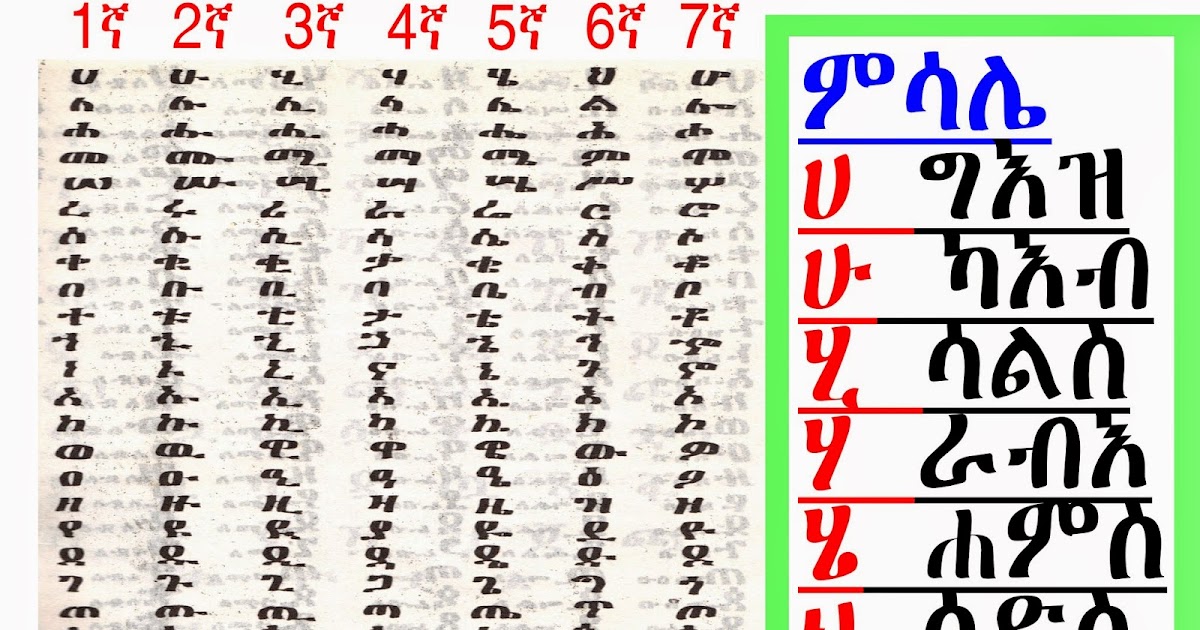 1ኛ 2ኛ 3ኛ 4ኛ 5ኛ 6ኛ 7ኛ
ሀ ሁ ሂ ሃ ሄ ህ ሆ
ለ ሉ ሊ ላ ሌ ል ሎ
ሐ ሑ ሒ ሓ ሔ ሕ ሖ
መ ሙ ሚ ማ ሜ ም ሞ
ሠ ሡ ሢ ሣ ሤ ሥ ሦ
ረ ሩ ሪ ራ ሬ ር ሮ
ሰ ሱ ሲ ሳ ሴ ስ ሶ
ቀ ቁ ቂ ቃ ቄ ቅ ቆ
በ ቡ ቢ ባ ቤ ብ ቦ
ተ ቱ ቲ ታ ቴ ት ቶ
ኀ ኁ ኂ ኃ ኄ ኅ ኆ
ነ ኑ ኒ ና ኔ ን ኖ
አ ኡ ኢ ኣ ኤ እ ኦ
ከ ኩ ኪ ካ ኬ ክ ኮ
ወ ዉ ዊ ዋ ዌ ው ዎ
ዐ ዑ ዒ ዓ ዔ ዕ ዖ
ዘ ዙ ዚ ዛ ዜ ዝ ዞ
የ ዩ ዪ ያ ዬ ይ ዮ
ደ ዱ ዲ ዳ ዴ ድ ዶ
ገ ጉ ጊ ጋ ጌ ግ ጎ
ጠ ጡ ጢ ጣ ጤ ጥ ጦ
ምሳሌ
ሀ ግእዝ
ሁ ካእብ
ሂ ሳልስ
ሃ ራብእ
ሄ ሐምስ